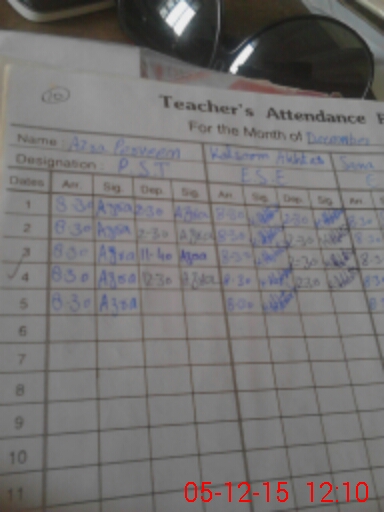 10
Teacher's Attendance
For the Month of December
Name: Azra Parveen Kalsoom Akhtar
Designation: P.S.T E.S.E
Dates Arr. Sig. Dep. Sig. Arr. Sig. Dep. Sig. Arr.
1 8:30 Azra 2:30 Azra 8:30 2:30 8:30
2 8:30 Azra 2:30 Azra 8:30 2:30
3 8:30 Azra 11:40 Azra 8:30 2:30
4 8:30 Azra 12:30 Azra 8:30 2:30
5 8:30 Azra 8:30
6
7
8
9
10
11
05-12-15 12:10